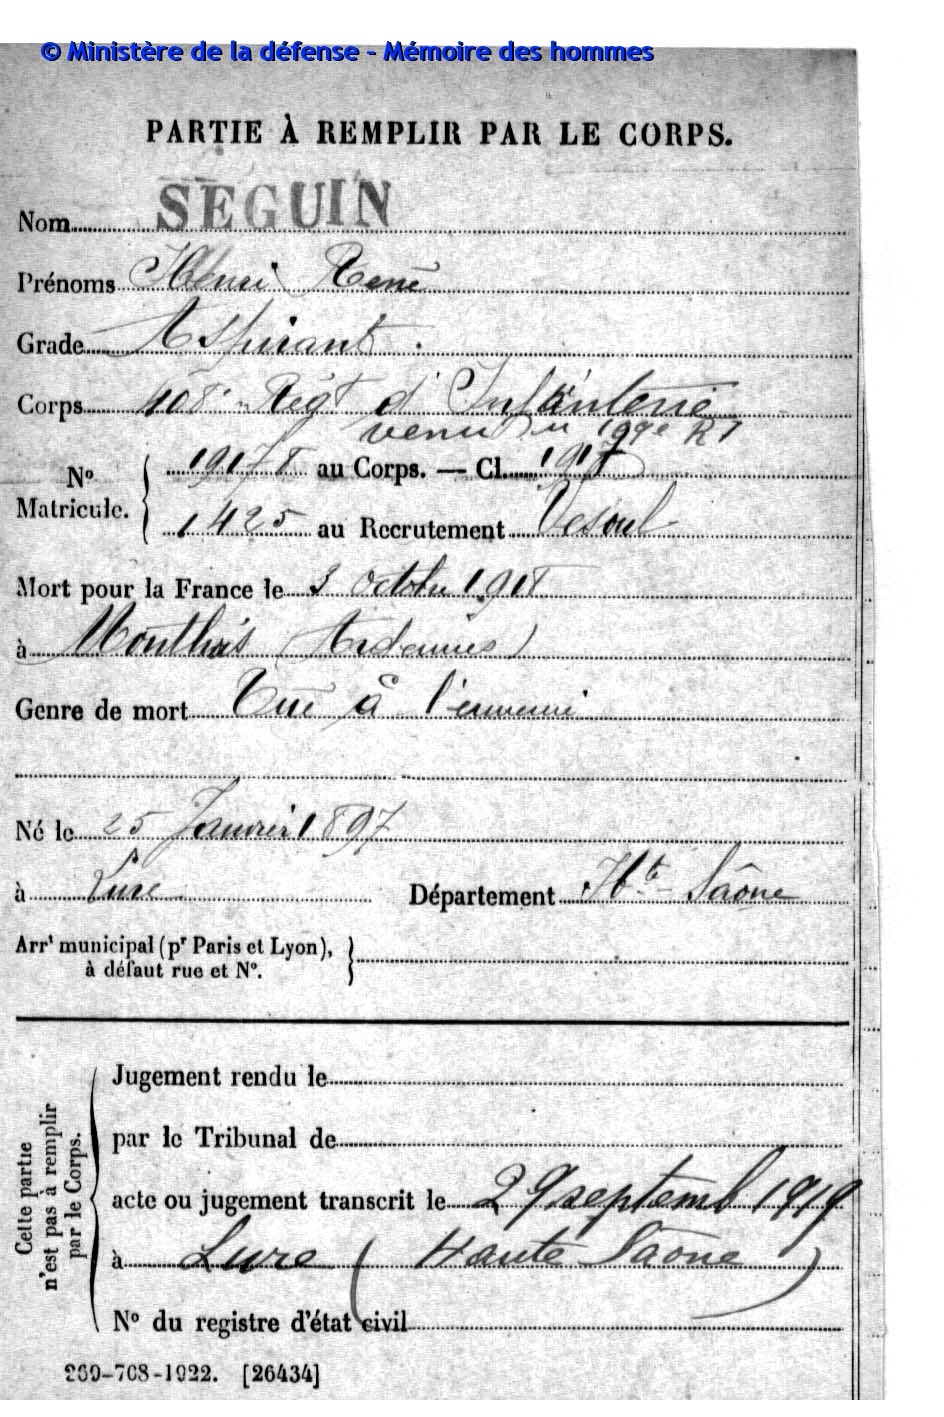 © Ministère de la défense - Mémoire des hommes
PARTIE À REMPLIR PAR LE CORPS.
Nom SEGUIN
Prénoms Henri René
Grade Aspirant.
Corps 408e Régt d'Infanterie
venu du 199e RI
No Matricule. { 19178 au Corps. — Cl. 1917
1425 au Recrutement Vesoul
Mort pour la France le 3 octobre 1918
à Monthois (Ardennes)
Genre de mort Tué à l'ennemi
Né le 25 Janvier 1897
à Lure Département Hte Saône
Arrt municipal (pr Paris et Lyon),
à défaut rue et No.
Cette partie n'est pas à remplir par le Corps.
Jugement rendu le
par le Tribunal de
acte ou jugement transcrit le 29 septemb 1919
à Lure (Haute Saône)
No du registre d'état civil
269-708-1922. [26434]